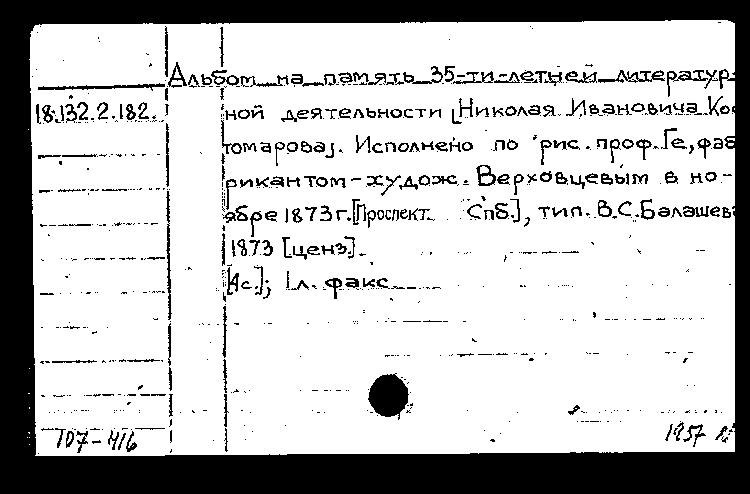 Альбом на память 35-ти-летней литератур-
18.132.2.182. ной деятельности [Николая Ивановича Кос
томарова]. Исполнено по рис. проф. Ге, фаб
рикантом-худож. Верховцевым в но-
ябре 1873 г. [Проспект. Спб.], тип. В.С. Балашев
1873 [ценз].
[4с.]; 1л. факс
107-416 1957